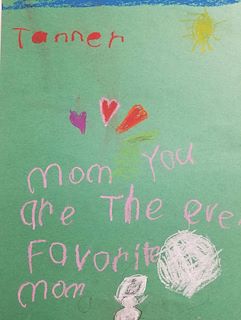 Tanner
Mom You
are The eve
Favorite
mom